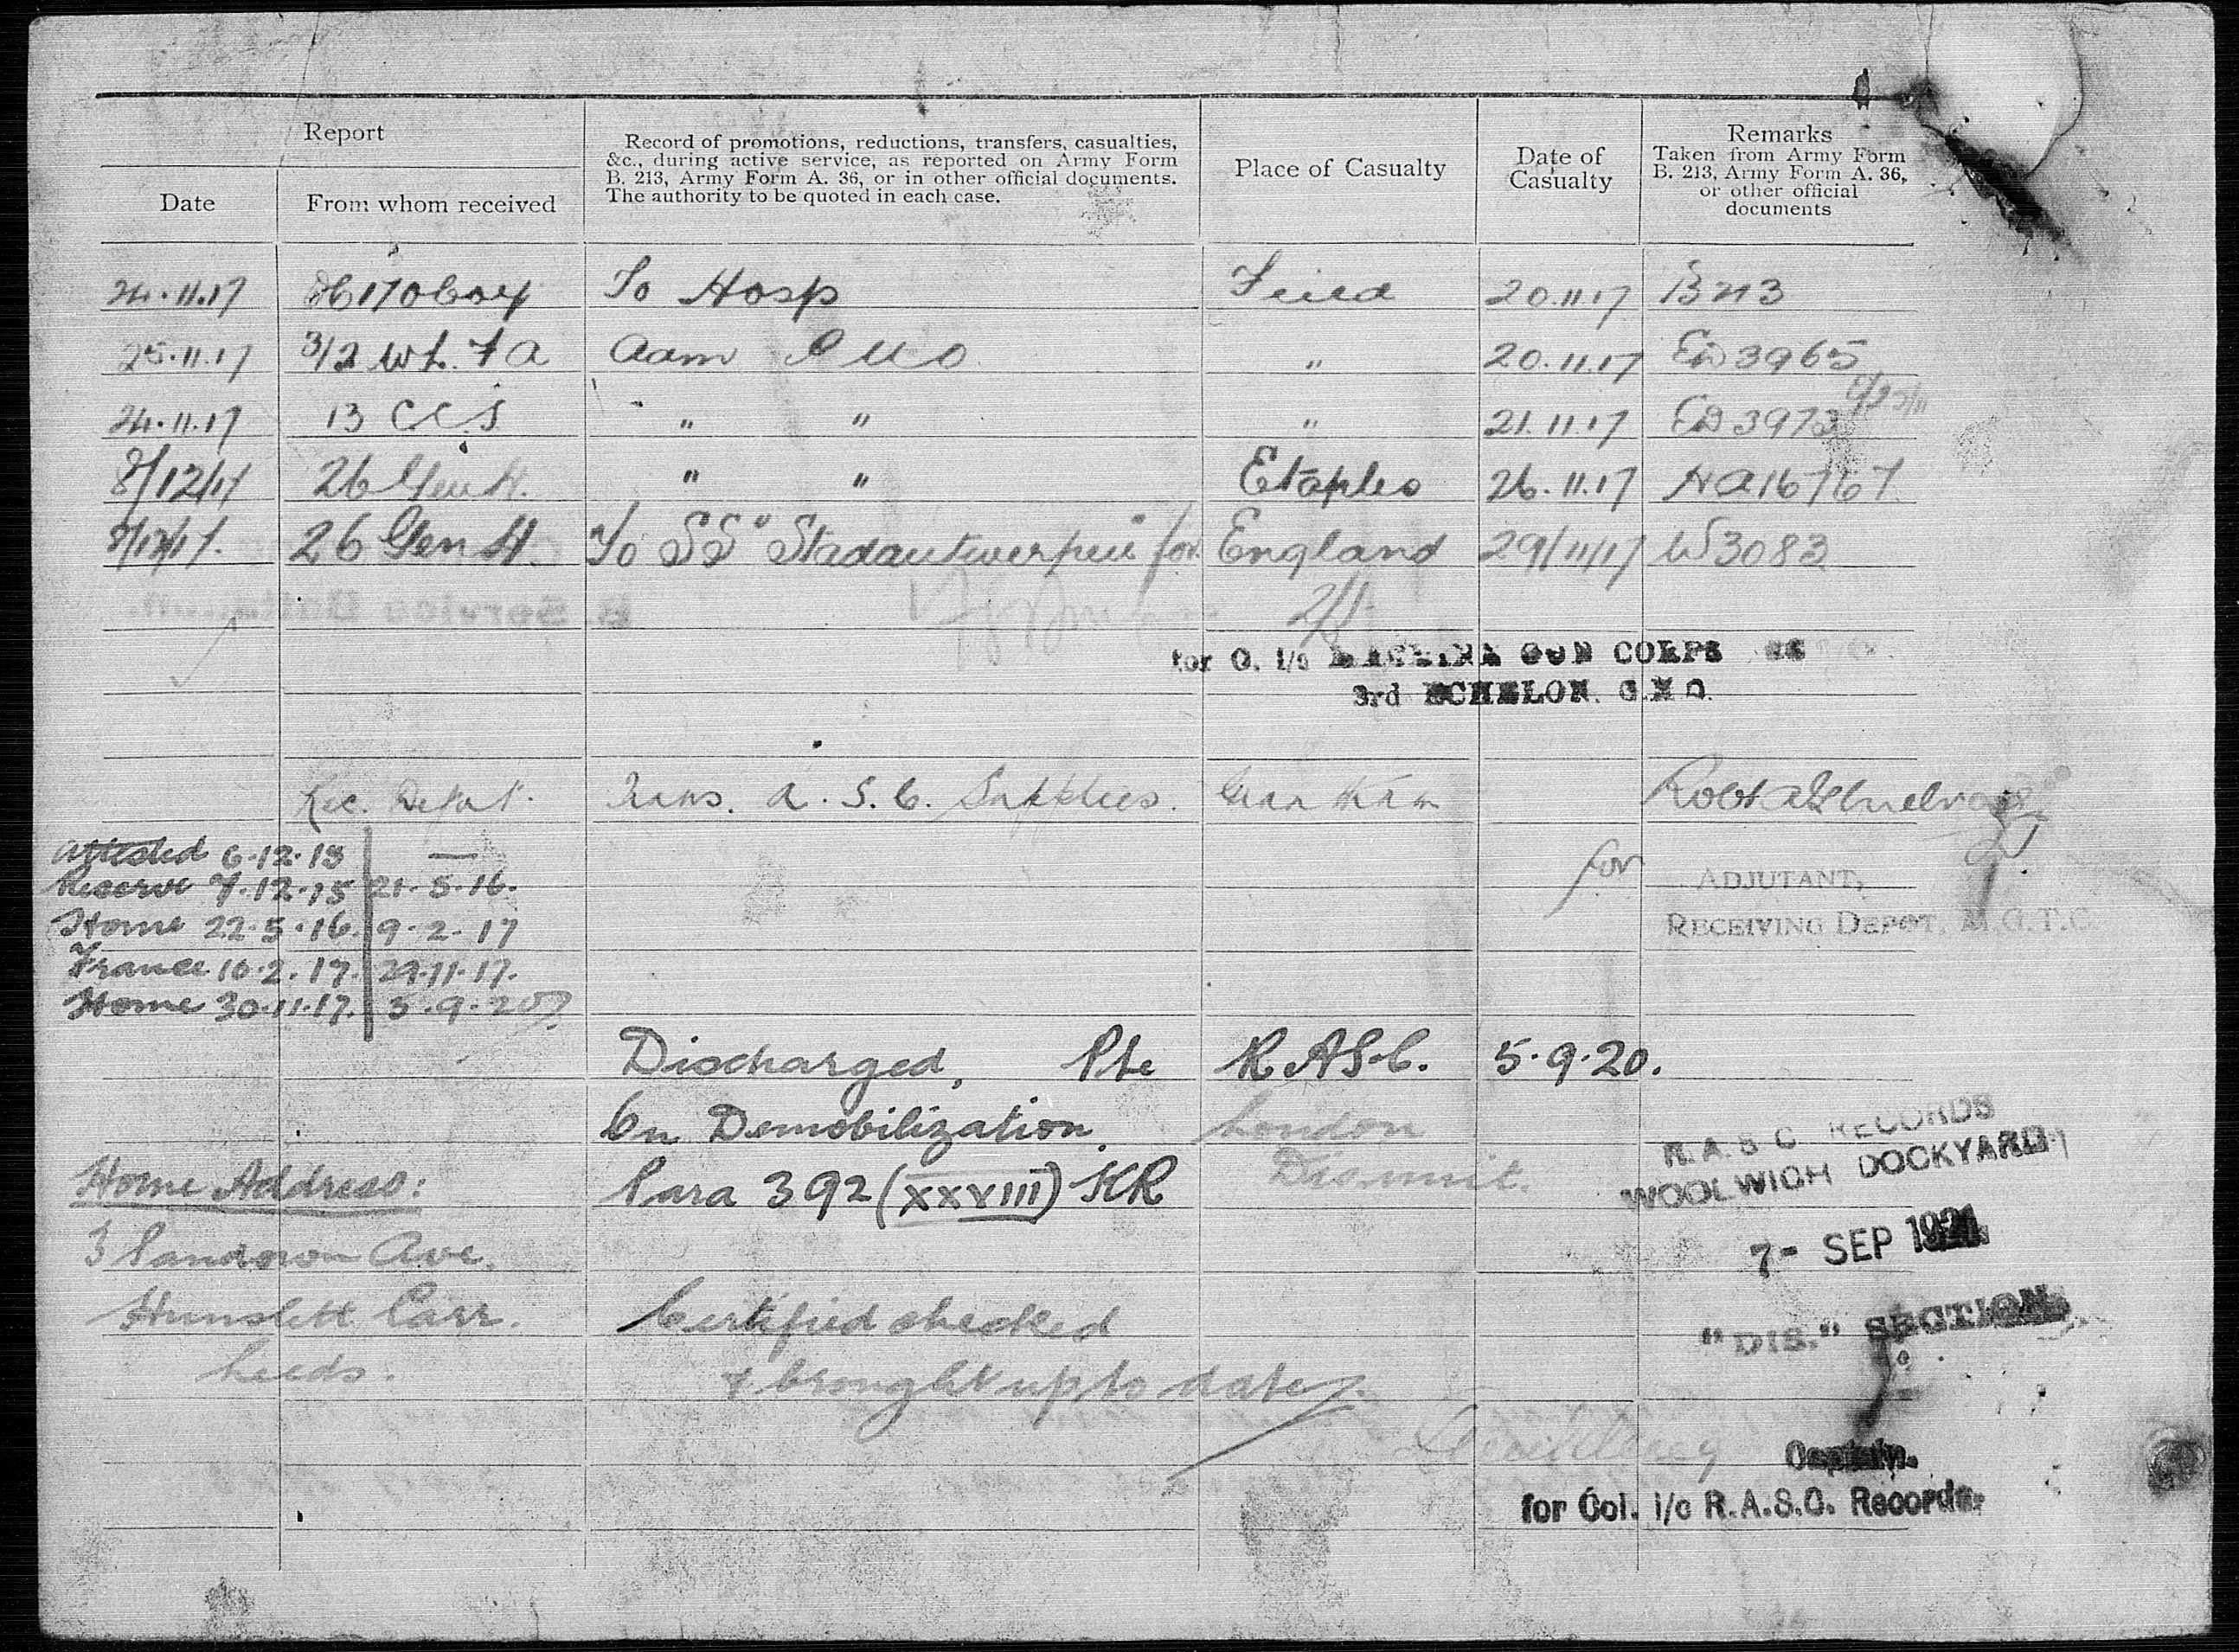 Report
Record of promotions, reductions, transfers, casualties,
&c., during active service, as reported on Army Form
B. 213, Army Form A. 36, or in other official documents.
The authority to be quoted in each case.
Place of Casualty
Date of
Casualty
Remarks
Taken from Army Form
B. 213, Army Form A. 36,
or other official
documents
Date
From whom received
24.11.17 To Hosp Field 20.11.17 B213
25.11.17 3/2 W L. F A Adm 20.11.17 ED 3965
24.11.17 13 CCS " " " 21.11.17 ED 3973
8/12/17 26 Gen H. " " Etaples 26.11.17 HA 16767
8/12/17. 26 Gen H. To SS "Stadantwerpen" for England 29/11/17 W3083
for O. i/c MACHINE GUN CORPS
3rd ECHELON. G.H.Q.
Rec. Depot. Trans. A.S.C. Supplies.
Attested 6.12.15 —
Reserve 7.12.15 21.5.16.
Home 22.5.16. 9.2.17
France 10.2.17. 29.11.17.
Home 30.11.17. 5.9.20
for
ADJUTANT,
RECEIVING DEPOT, M.G.T.C.
Discharged, Pte R.A.S.C. 5.9.20.
On Demobilization. London
Para 392 (XXVIII) KR Dis. unit.
R.A.S.C. RECORDS
WOOLWICH DOCKYARD
7- SEP 1921
"DIS." SECTION
Home Address:
3 Sandown Ave.
Hunslett Carr.
Leeds.
Certified checked
& brought up to date.
Captain.
for Col. i/c R.A.S.C. Records.